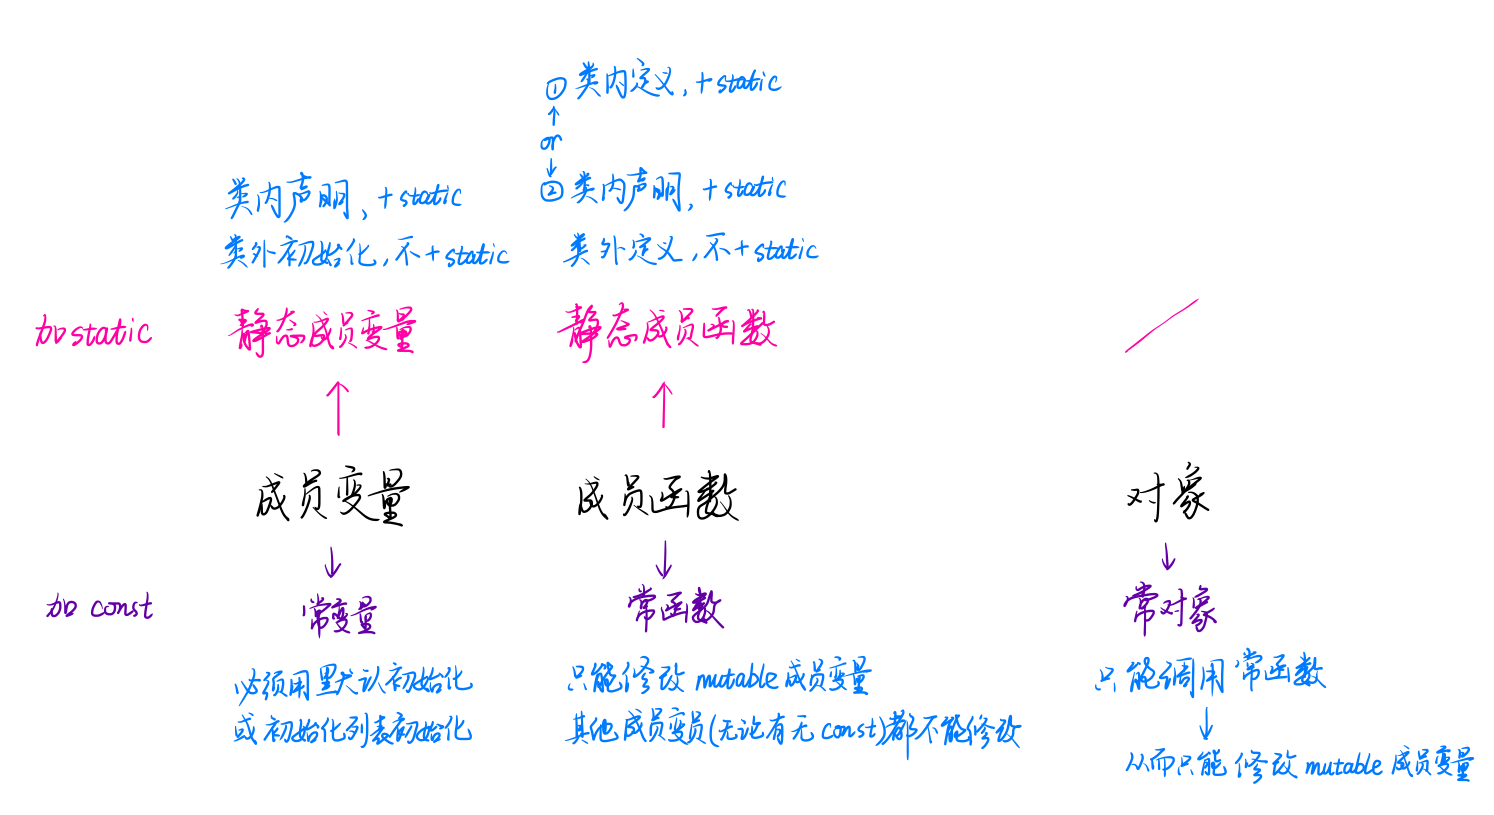 ①类内定义,+static
or
②类内声明,+static
类外定义,不+static
类内声明,+static
类外初始化,不+static
加static
静态成员变量
静态成员函数
成员变量
成员函数
对象
加const
常变量
常函数
常对象
必须用默认初始化
或初始化列表初始化
只能修改mutable成员变量
其他成员变员(无论有无const)都不能修改
只能调用常函数
从而只能修改mutable成员变量